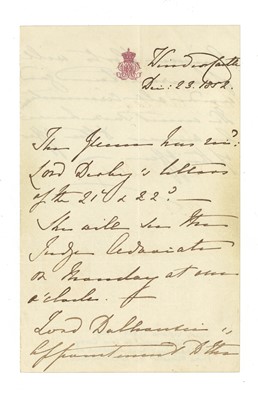 Windsor Castle
Dec: 23. 1852.
The Queen has recd:
Lord Derby's letters
of the 21st & 22d. —
She will see the
Judge Advocate
on Monday at one
o'clock. —
Lord Dalhousie's
appointment to the